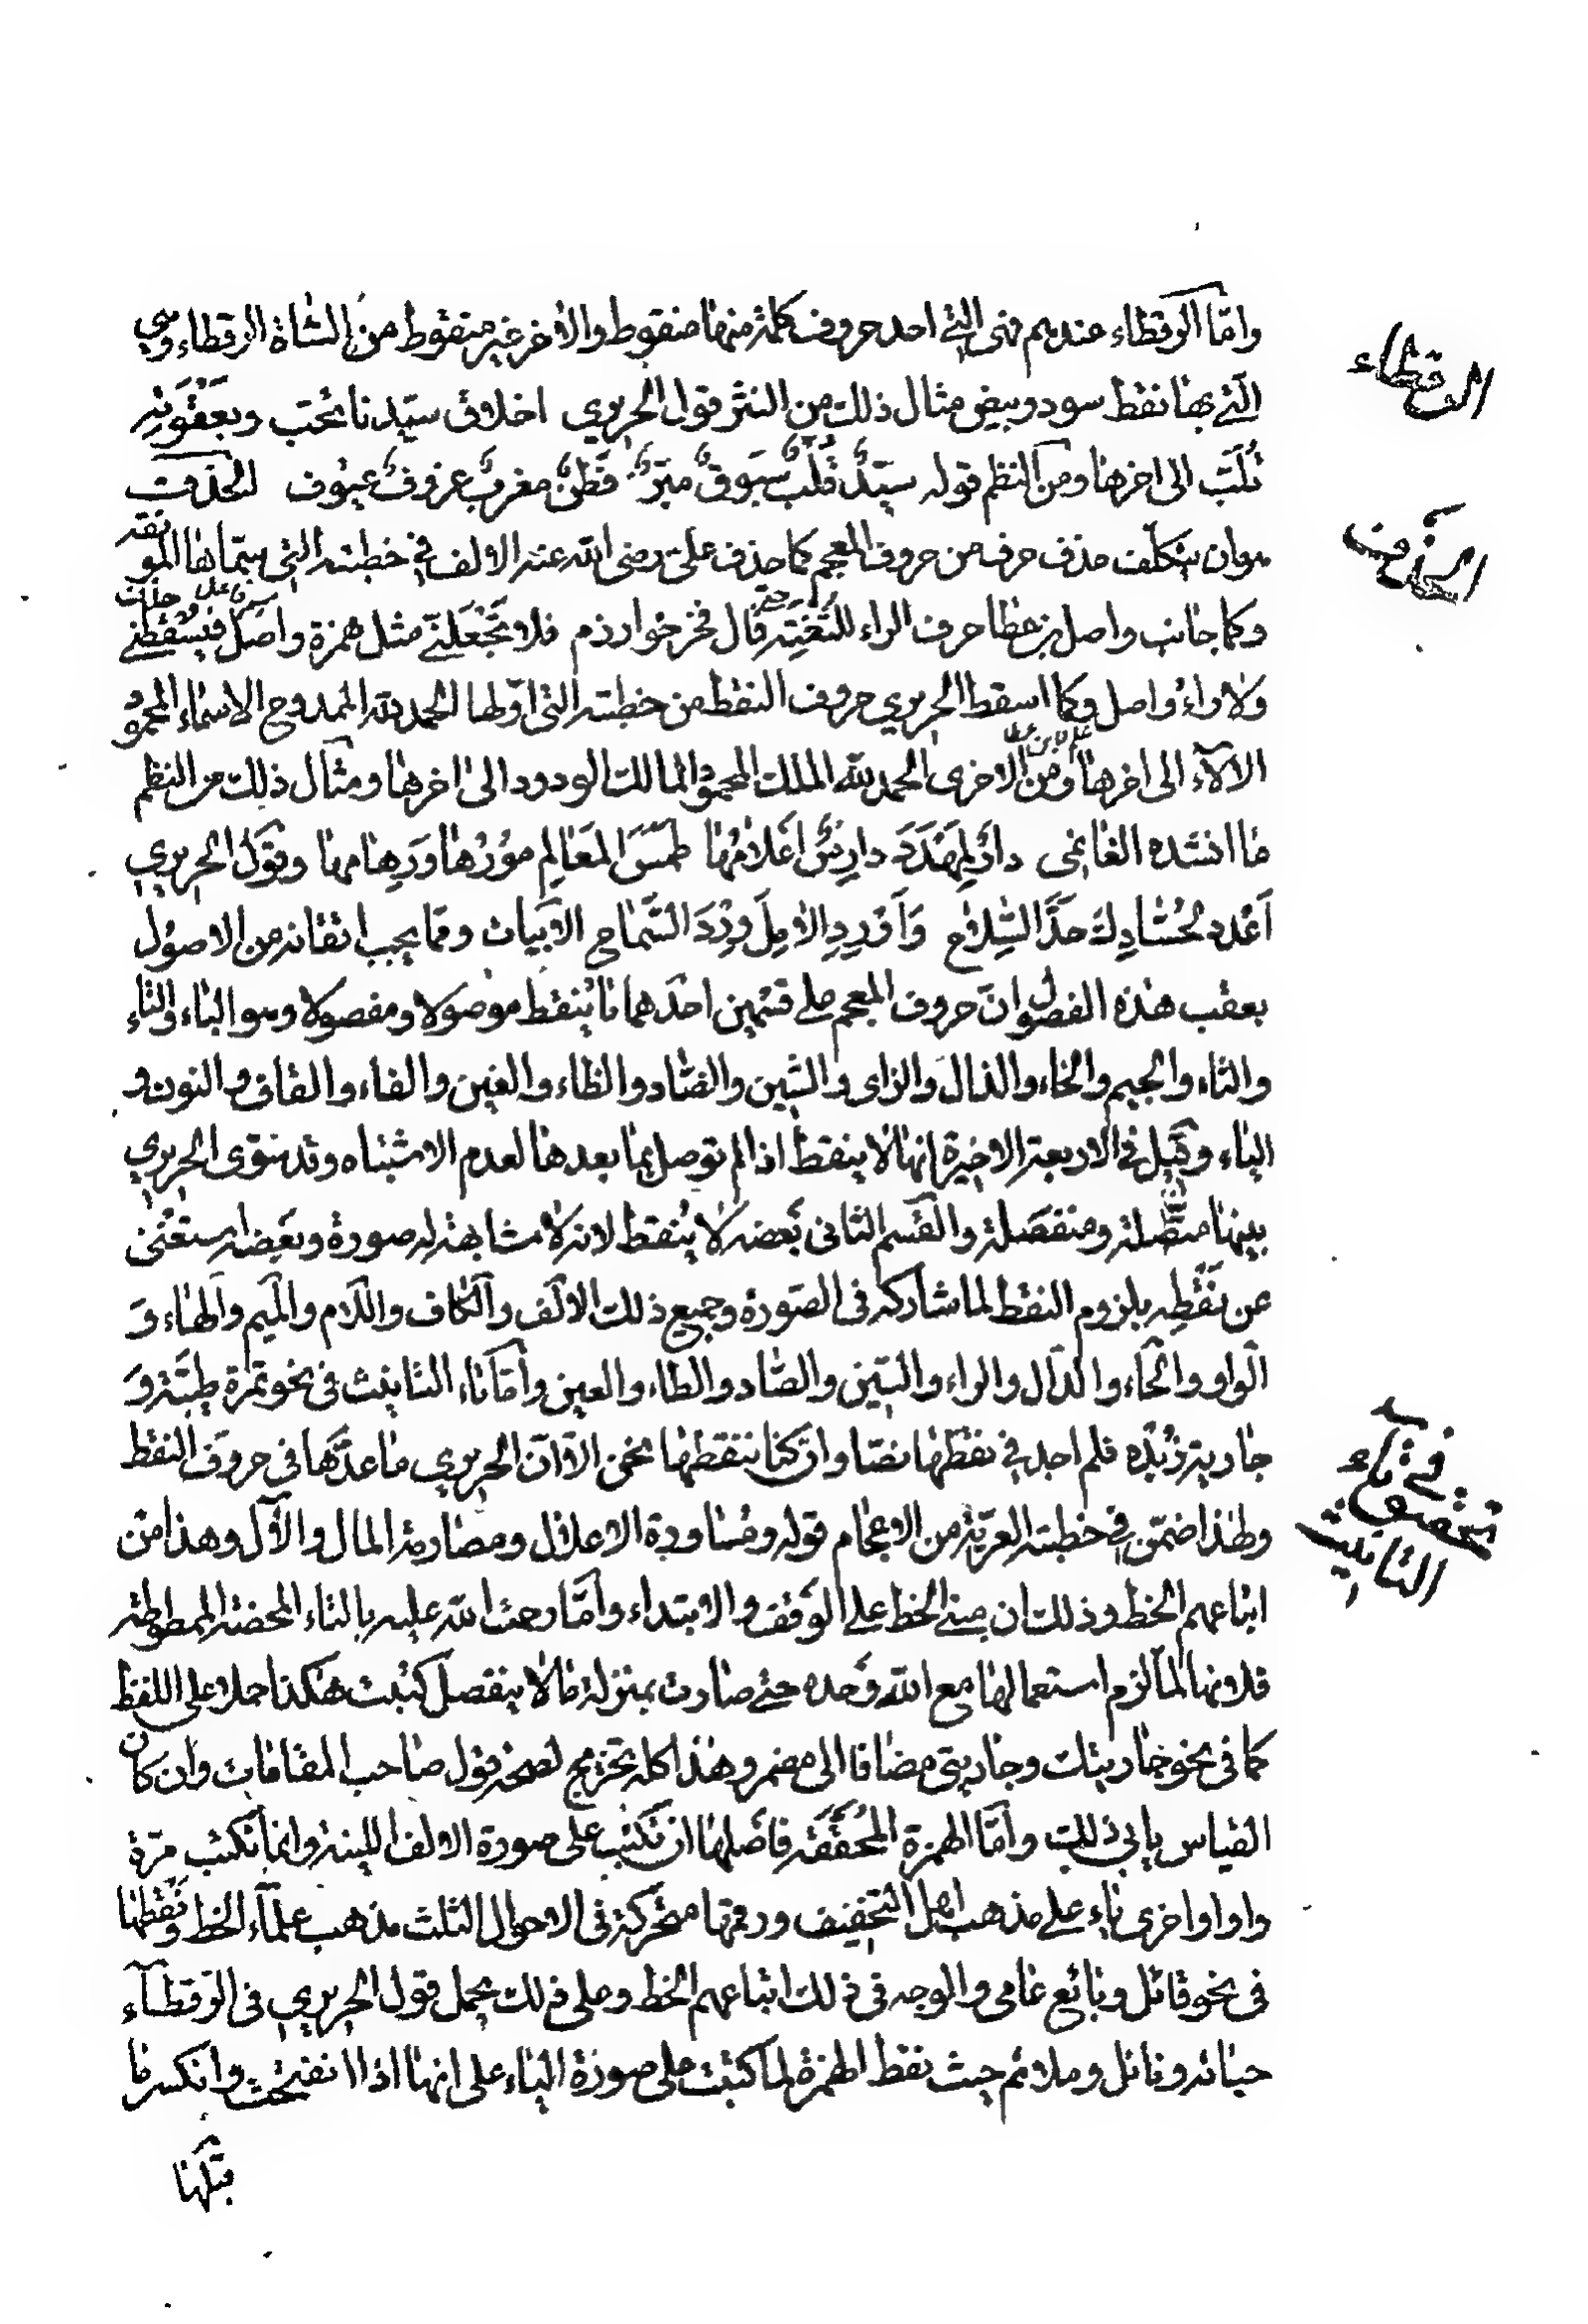 واما الرقطاء عندهم فهى التى احد حروف كلمة منها منقوط والاخر غير منقوط من الشاة الرقطاء وهى
الرقطاء
التى بها نقط سود وبيض مثال ذلك من النثر قول الحريرى اخلاق سيدنا تحب وبعقوته
يُلَبّ الى اخرها ومن النظم قوله سيّدٌ قُلّبٌ سَبوقٌ مبرٌّ فَطِنٌ مغربٌ عزوفٌ عيوف الحذف
الحذف
هو ان يتكلف حذف حرف من حروف المعجم كما حذف على رضى الله عنه الالف فى خطبته التى سماها المو نقة
وكما جانب واصل بن عطا حرف الراء للثغته قال فخر خوارزم فلا تجعلنّى مثل همزة واصل فيسقطنى
ولا راء واصل وكما اسقط الحريرى حروف النقط من خطبته التى اولها الحمد لله الممدوح الاسماء المحمود
الالآء الى اخرها ومن الاخرى الحمد لله الملك المحمود المالك الودود الى اخرها ومثال ذلك من النظم
ما انشده الغانمى دارٌ لِمَهْدَدَ دارِسٌ اَعْلامُها طمسَ المَعَالِم مُورُها ورِهامها وقول الحريرى
اَعْدد لحُسّادِكَ حدَّ السِّلاح وَاَوْرِدِ الامِلَ وِرْدَ السَّماح الابيات ومما يجب اتقانه من الاصول
بعقب هذه الفصول ان حروف المعجم على قسمين احدهما ما يُنقط موصولا ومفصولا وهو الباء والتاء
والثاء والجيم والخاء والذال والزاى والشين والضاد والظاء والغين والفاء والقاف والنون و
الياء وقيل فى الاربعة الاخيرة انها لا ينقط اذا لم توصل بما بعدها لعدم الاشتباه وقد سوّى الحريرى
بينها متصلة ومنفصلة والقسم الثانى بعضه لا يُنقط لانه لا مشابهة له صورة وبعضه استغنى
عن نَقْطِه بلزوم النقط لما شاركه فى الصورة وجميع ذلك الالف والكاف واللام والميم والهاء و
الواو والحاء والدال والراء والسين والصاد والطاء والعين واما تاء التانيث فى نحو تمرة طيبة و
جارية زيده فلم اجد فى نقطها نصّا وان كنا ننقطها نحن الا ان الحريرى ما عدّها فى حروف النقط
فى تحقيق تاء التانيث
ولهذا ضمّن فى خطبته العريّة من الاعجام قوله ومساورة الاعلال ومصارمة المال والآل وهذا من
اتباعهم الخط وذلك ان مبنى الخط على الوقف والابتداء واما رحمت الله عليه بالتاء المحضة الممطوطة
فلانها لما لزم استعمالها مع الله وحده حتى صارت بمنزلة ما لا ينفصل كتبت هكذا حملا على اللفظ
كما فى نحو جاريتك وجاريتى مضافا الى مضمر وهذا كله تخريج لصحة قول صاحب المقامات وان كان
القياس يابى ذلك واما الهمزة المحققة فاصلها ان تكتب على صورة الالف اللينة وانما تكتب مرّة
واوا واخرى ياء على مذهب اهل التخفيف ورقمها متحركة فى الاحوال الثلث مذهب علماء الخط ونقطها
فى نحو قائل وبائع عامى والوجه فى ذلك اتباعهم الخط وعلى ذلك يحمل قول الحريرى فى الرقطاء
حبائه ونائل وملائم حيث نقط الهمزة لما كتبت على صورة الياء على انها اذا انفتحت وانكسر ما
قبلها